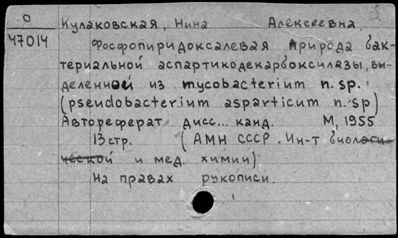 О
47014
Кулаковская, Нина Алексеевна
Фосфопиридоксалевая природа бак-
териальной аспартикодекарбоксилазы, вы-
деленной из mycobacterium n. sp.
(pseudobacterium asparticum n. sp)
Автореферат дисс... канд. М, 1955
13 стр. (АМН СССР. Ин-т биологи-
ческой и мед. химии)
На правах рукописи.